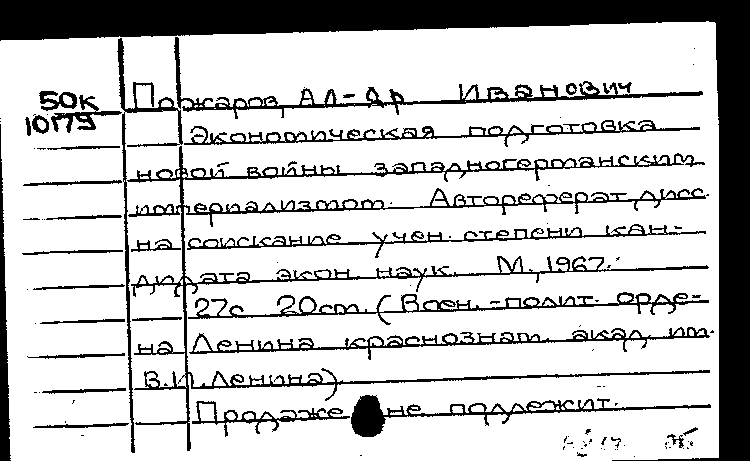 50к Пожаров, Ал-др Иванович
10179
Экономическая подготовка
новой войны западногерманским
империализмом. Автореферат дисс.
на соискание учен. степени кан-
дидата экон. наук. М., 1967.
27с 20см. (Воен.-полит. орде-
на Ленина краснознам. акад. им.
В.И. Ленина)
Продаже не подлежит.